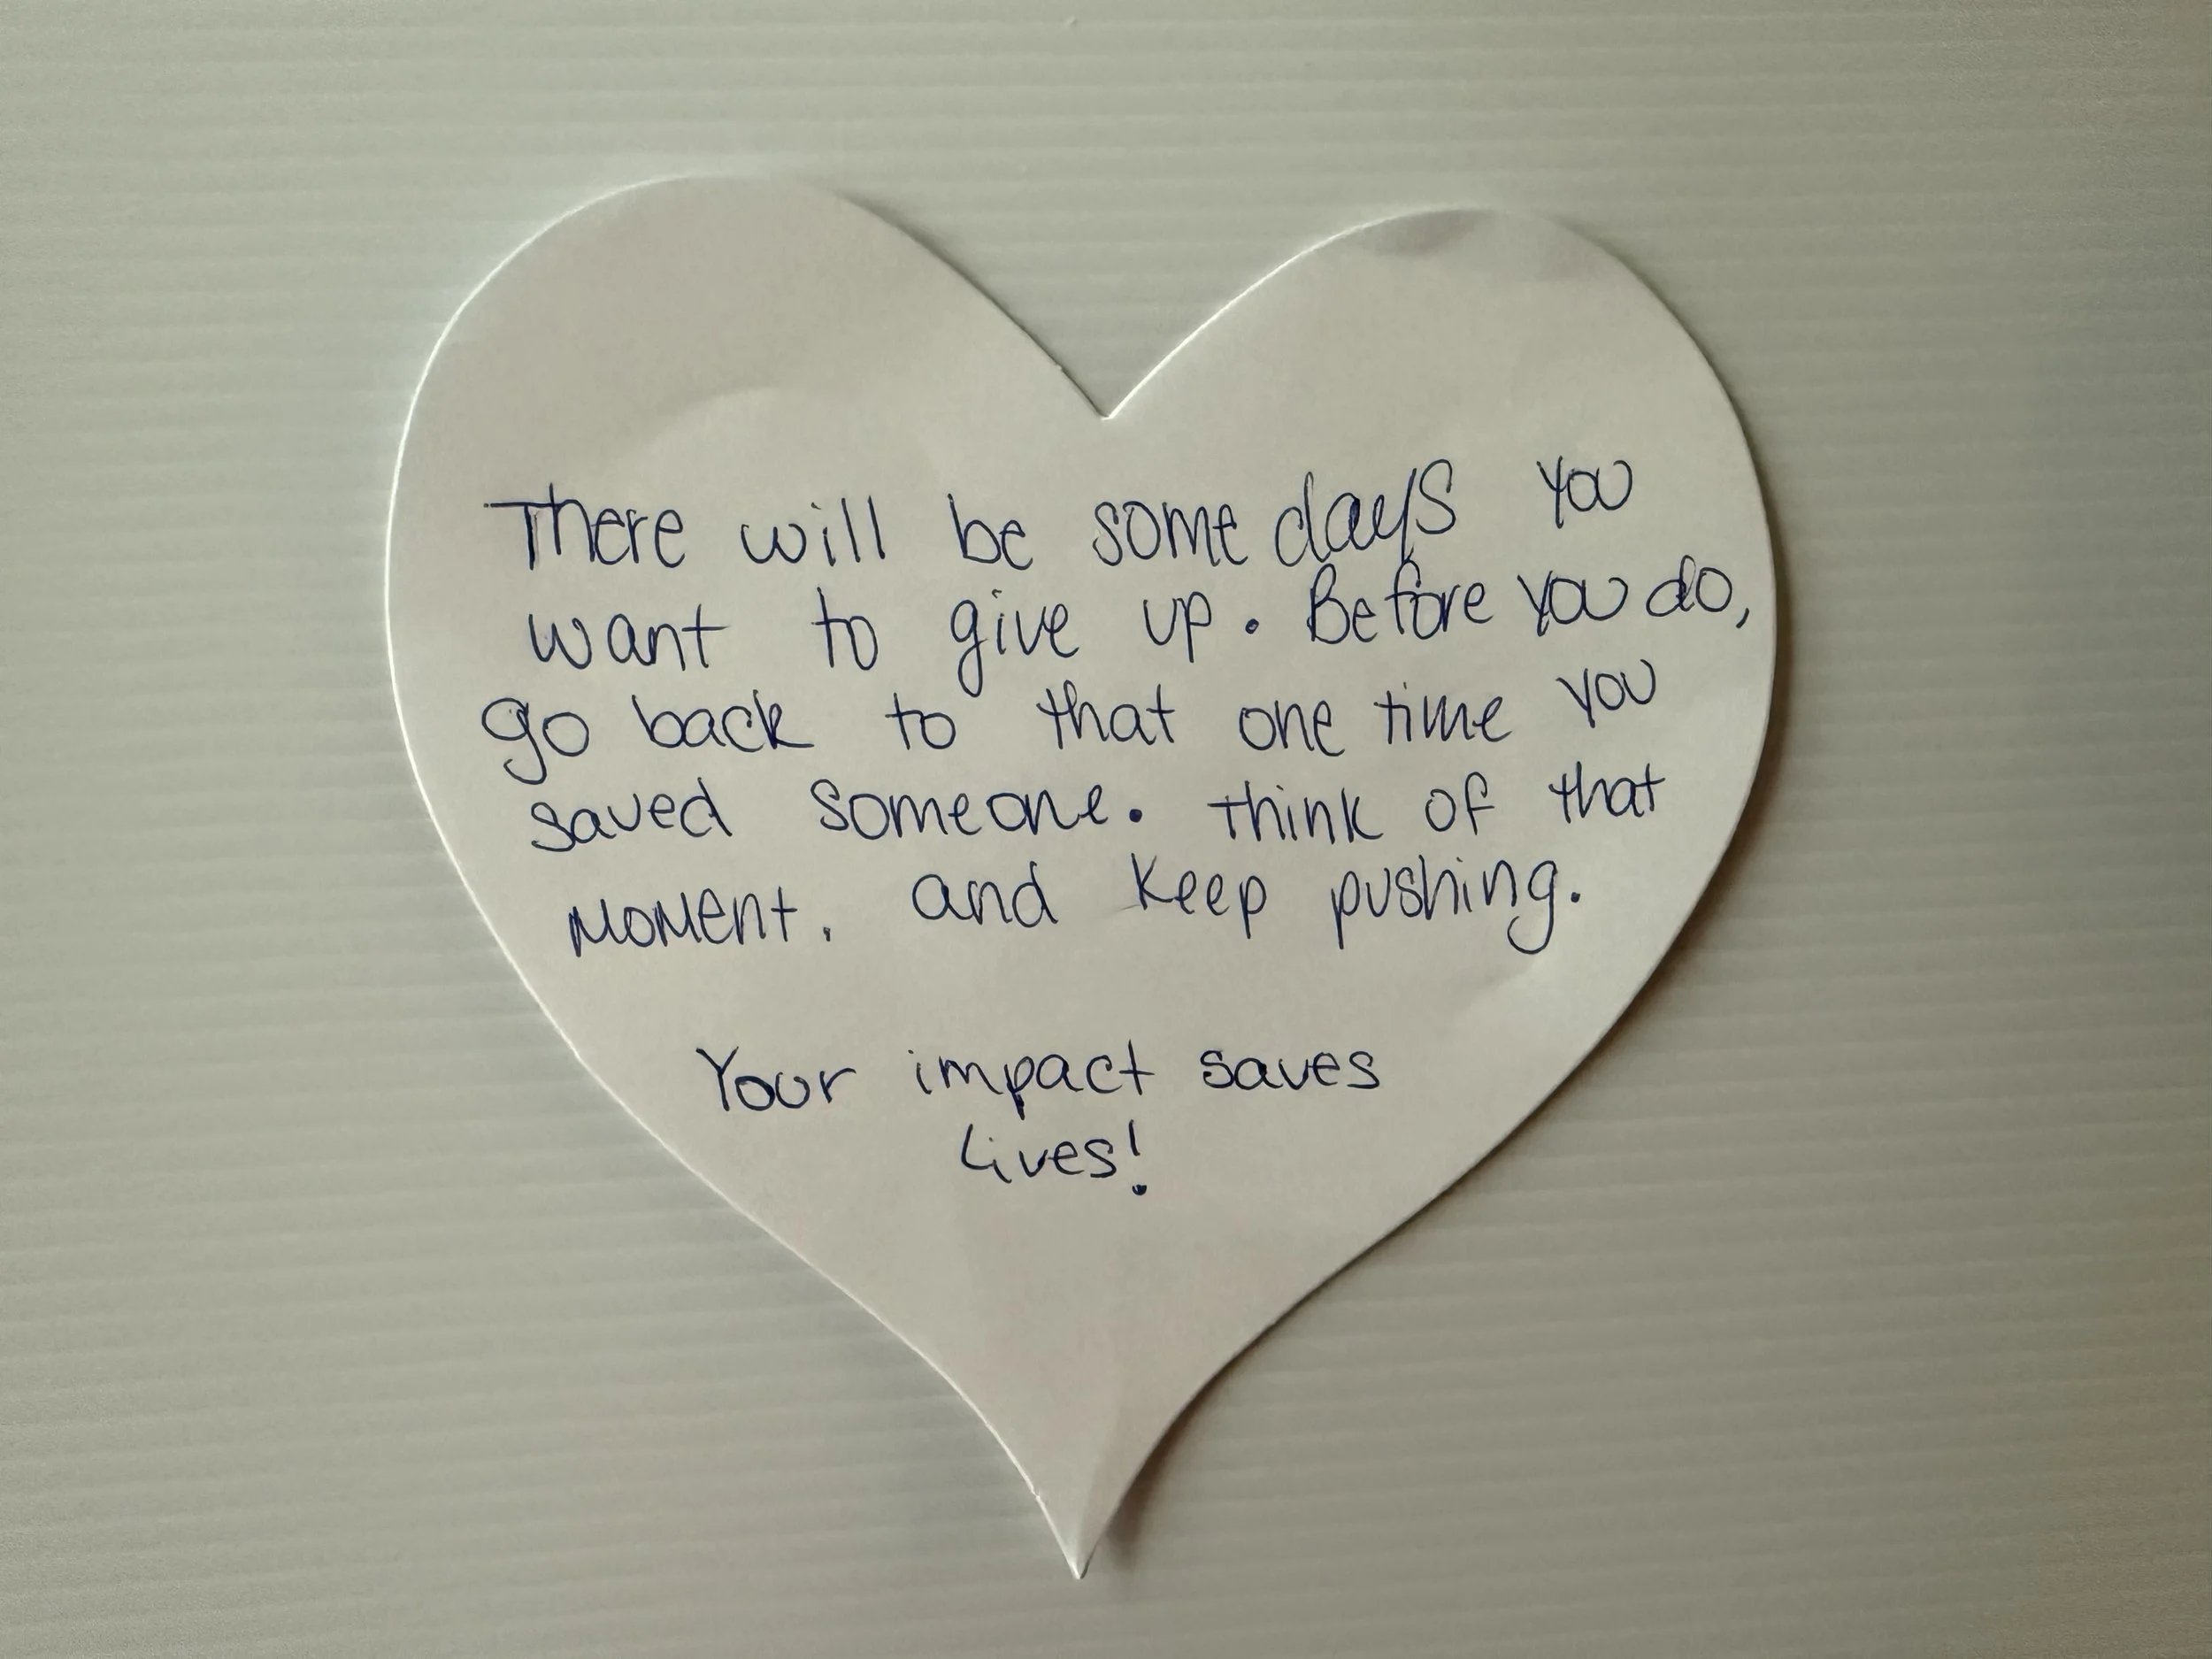 There will be some days you
want to give up. Before you do,
go back to that one time you
saved someone. think of that
moment. and keep pushing.
Your impact saves
lives!